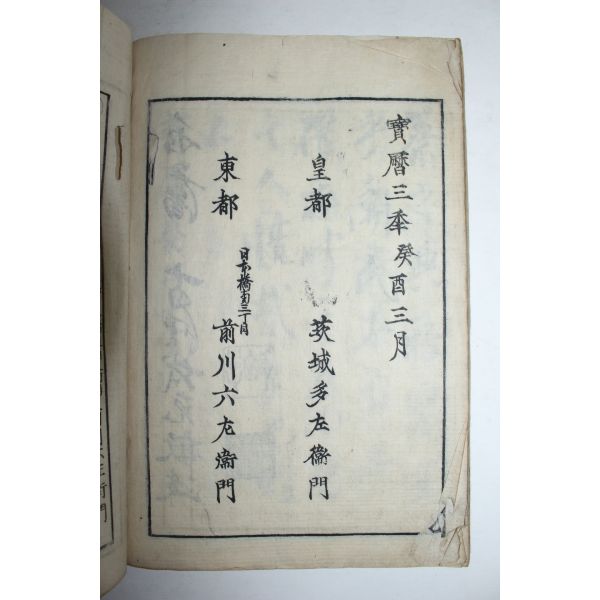 寶暦三年癸酉三月
皇都 茨城多左衞門
東都 日本橋南三丁目 前川六左衞門